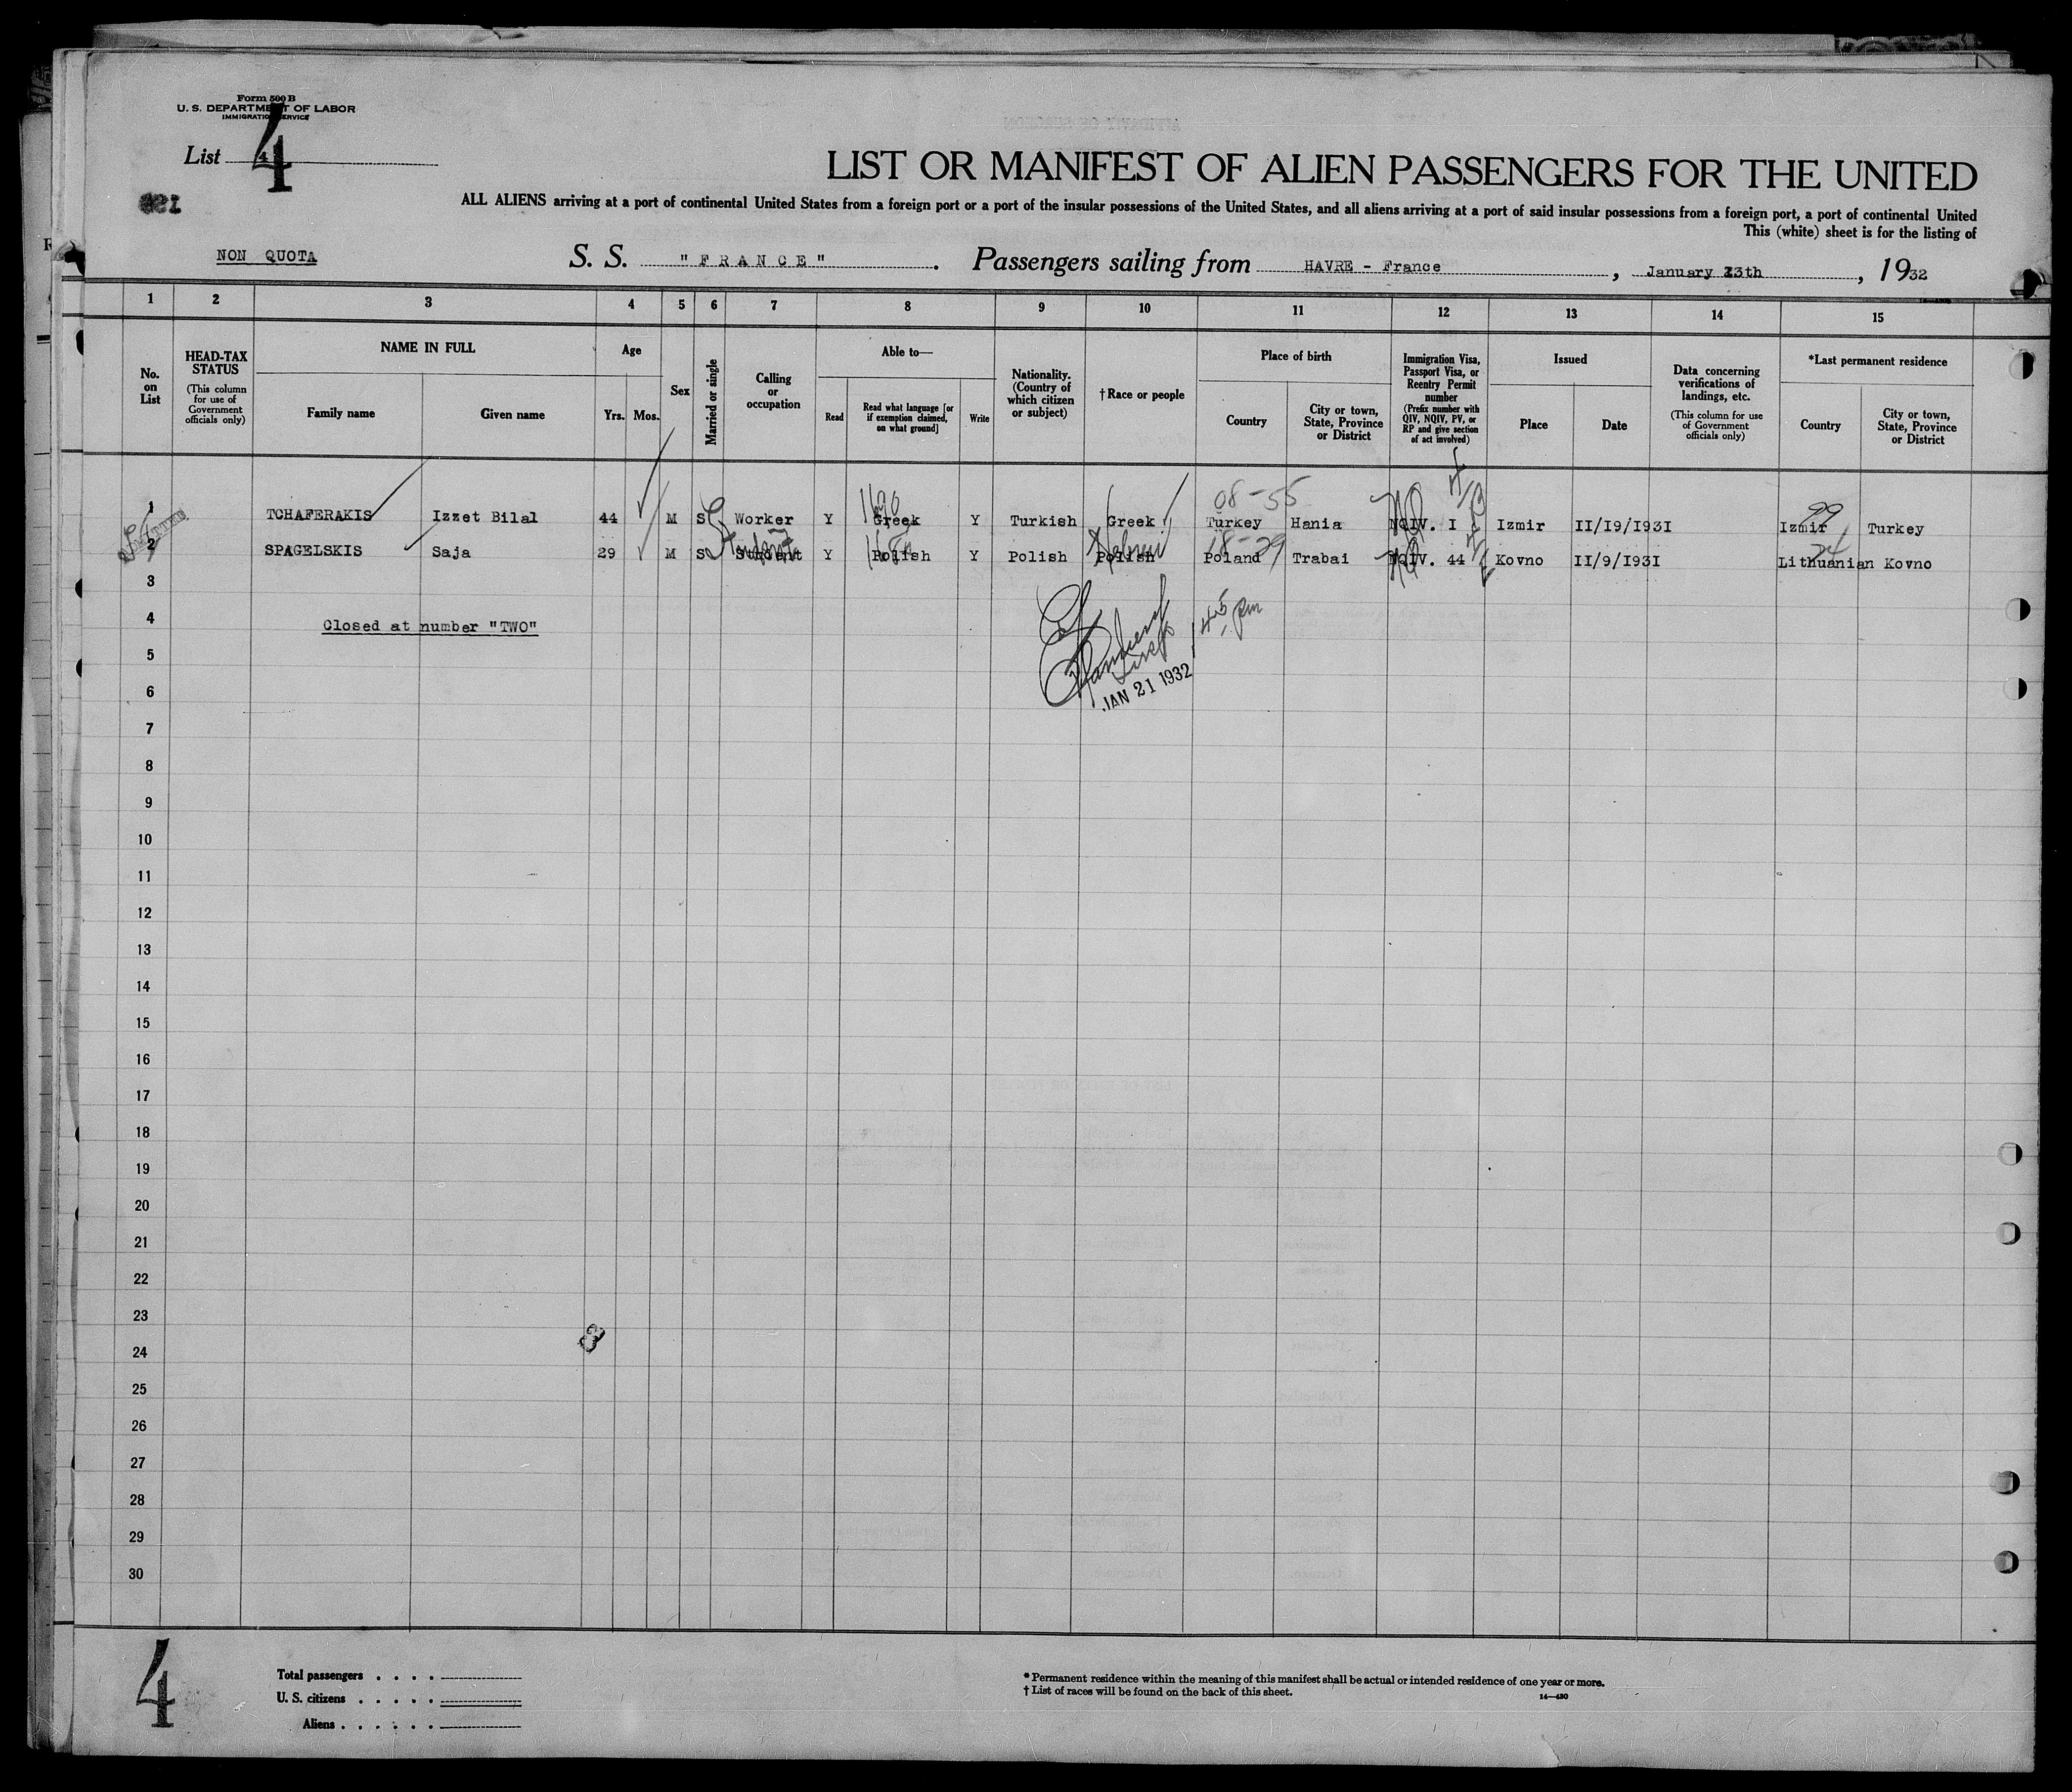 Form 500 B
U. S. DEPARTMENT OF LABOR
IMMIGRATION SERVICE
List 4
LIST OR MANIFEST OF ALIEN PASSENGERS FOR THE UNITED
ALL ALIENS arriving at a port of continental United States from a foreign port or a port of the insular possessions of the United States, and all aliens arriving at a port of said insular possessions from a foreign port, a port of continental United
This (white) sheet is for the listing of
NON QUOTA S. S. "FRANCE". Passengers sailing from HAVRE - France, January 13th, 1932
1 2 3 4 5 6 7 8 9 10 11 12 13 14 15
No. on List
HEAD-TAX STATUS
(This column for use of Government officials only)
NAME IN FULL
Family name Given name
Age
Yrs. Mos.
Sex
Married or single
Calling or occupation
Able to—
Read
Read what language [or if exemption claimed, on what ground]
Write
Nationality. (Country of which citizen or subject)
†Race or people
Place of birth
Country
City or town, State, Province or District
Immigration Visa, Passport Visa, or Reentry Permit number
(Prefix number with QIV, NQIV, PV, or RP and give section of act involved)
Issued
Place Date
Data concerning verifications of landings, etc.
(This column for use of Government officials only)
*Last permanent residence
Country
City or town, State, Province or District
1690 08-55 99
1 TCHAFERAKIS Izzet Bilal 44 M S Worker Y Greek Y Turkish Greek Turkey Hania NQIV. I Izmir II/I9/I93I Izmir Turkey
2 SPAGELSKIS Saja 29 M S Student Y Polish Y Polish Polish Poland Trabai NQIV. 44 Kovno II/9/I93I Lithuanian Kovno
3
4 Closed at number "TWO"
5
6 JAN 21 1932
7
8
9
10
11
12
13
14
15
16
17
18
19
20
21
22
23
24
25
26
27
28
29
30
4
Total passengers . . . .
U. S. citizens . . . . .
Aliens . . . . . .
* Permanent residence within the meaning of this manifest shall be actual or intended residence of one year or more.
† List of races will be found on the back of this sheet.
14—430